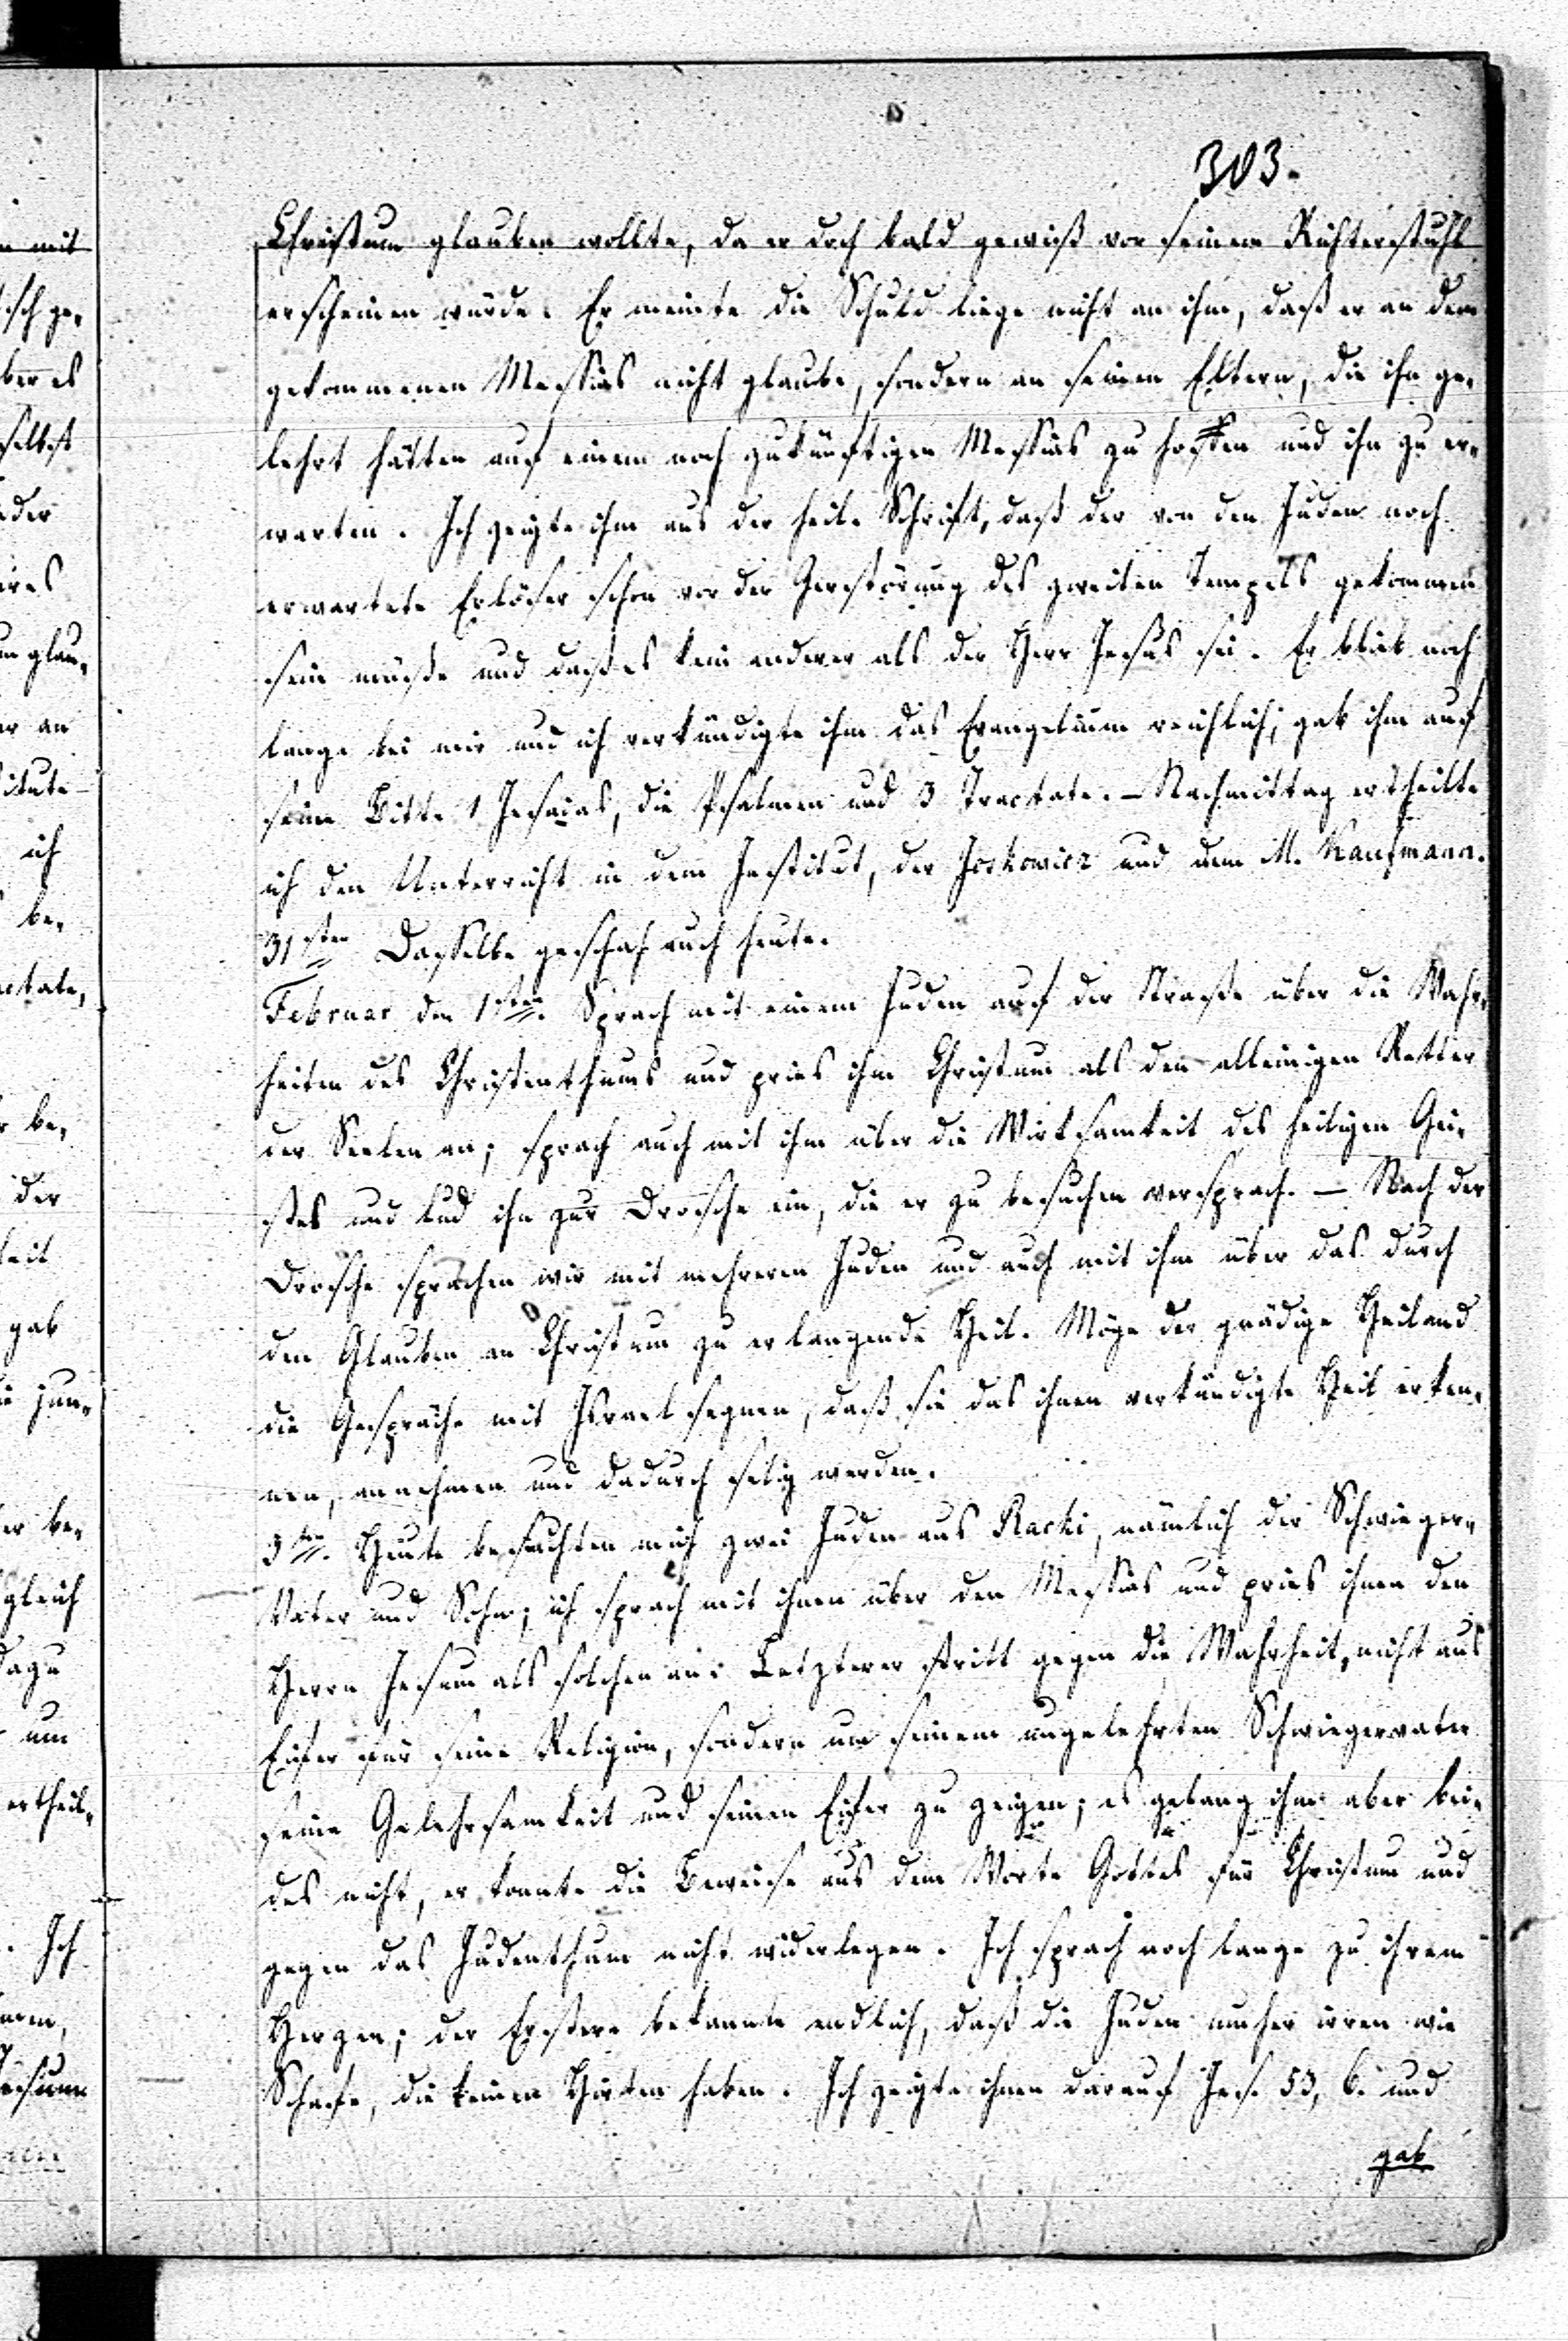 303.
Christum glauben wollte, da er doch bald gewiß vor seinem Richterstuhl
erscheinen würde. Er meinte die Schuld liege nicht an ihm, daß er an dem
gekommenen Messias nicht glaube, sondern an seinen Eltern, die ihn ge-
lehrt hätten auf einem noch zukünftigen Messias zu hoffen und ihn zu er-
warten. Ich zeigte ihm aus der heil. Schrift, daß der von den Juden noch
erwartete Erlöser schon vor der Zerstörung des zweiten Tempels gekommen
sein müsse und daß es kein anderer als der Herr Jesus sei. Er blieb noch
lange bei mir und ich verkündigte ihm das Evangelium reichlich; gab ihm auf
seine Bitte 1 Jesaias, die Psalmen und 3 Tractate. – Nachmittag ertheilte
ich den Unterricht in dem Institut, der Joskowicz und dem M. Kaufmann.
31sten Dasselbe geschah auch heute.
Februar den 1sten. Sprach mit einem Juden auf der Straße über die Wahr-
heiten des Christenthums und pries ihm Christum als den alleinigen Retter
der Seelen an; sprach auch mit ihm über die Wirksamkeit des heiligen Gei-
stes und lud ihn zur Drosche ein, die er zu besuchen versprach. – Nach der
Drosche sprachen wir mit mehreren Juden und auch mit ihm über das durch
den Glauben an Christum zu erlangende Heil. Möge der gnädige Heiland
die Gespräche mit Israel segnen, daß sie das ihnen verkündigte Heil erken-
nen, annehmen und dadurch selig werden.
3ten. Heute besuchten mich zwei Juden aus Racki, nämlich der Schwieger-
Vater und Sohn; ich sprach mit ihnen über den Messias und pries ihnen den
Herrn Jesum als solchen an. Letzterer stritt gegen die Wahrheit, nicht aus
Eifer für seine Religion, sondern um seinem ungelehrten Schwiegervater
seine Gelehrsamkeit und seinen Eifer zu zeigen; es gelang ihm aber bei-
des nicht, er konnte die Beweise aus dem Worte Gottes für Christum und
gegen das Judenthum nicht widerlegen. Ich sprach noch lange zu ihrem
Herzen; der Erstere bekannte endlich, daß die Juden umher irren wie
Schafe, die keinen Hirten haben. Ich zeigte ihnen darauf Jes. 53, 6. und
gab